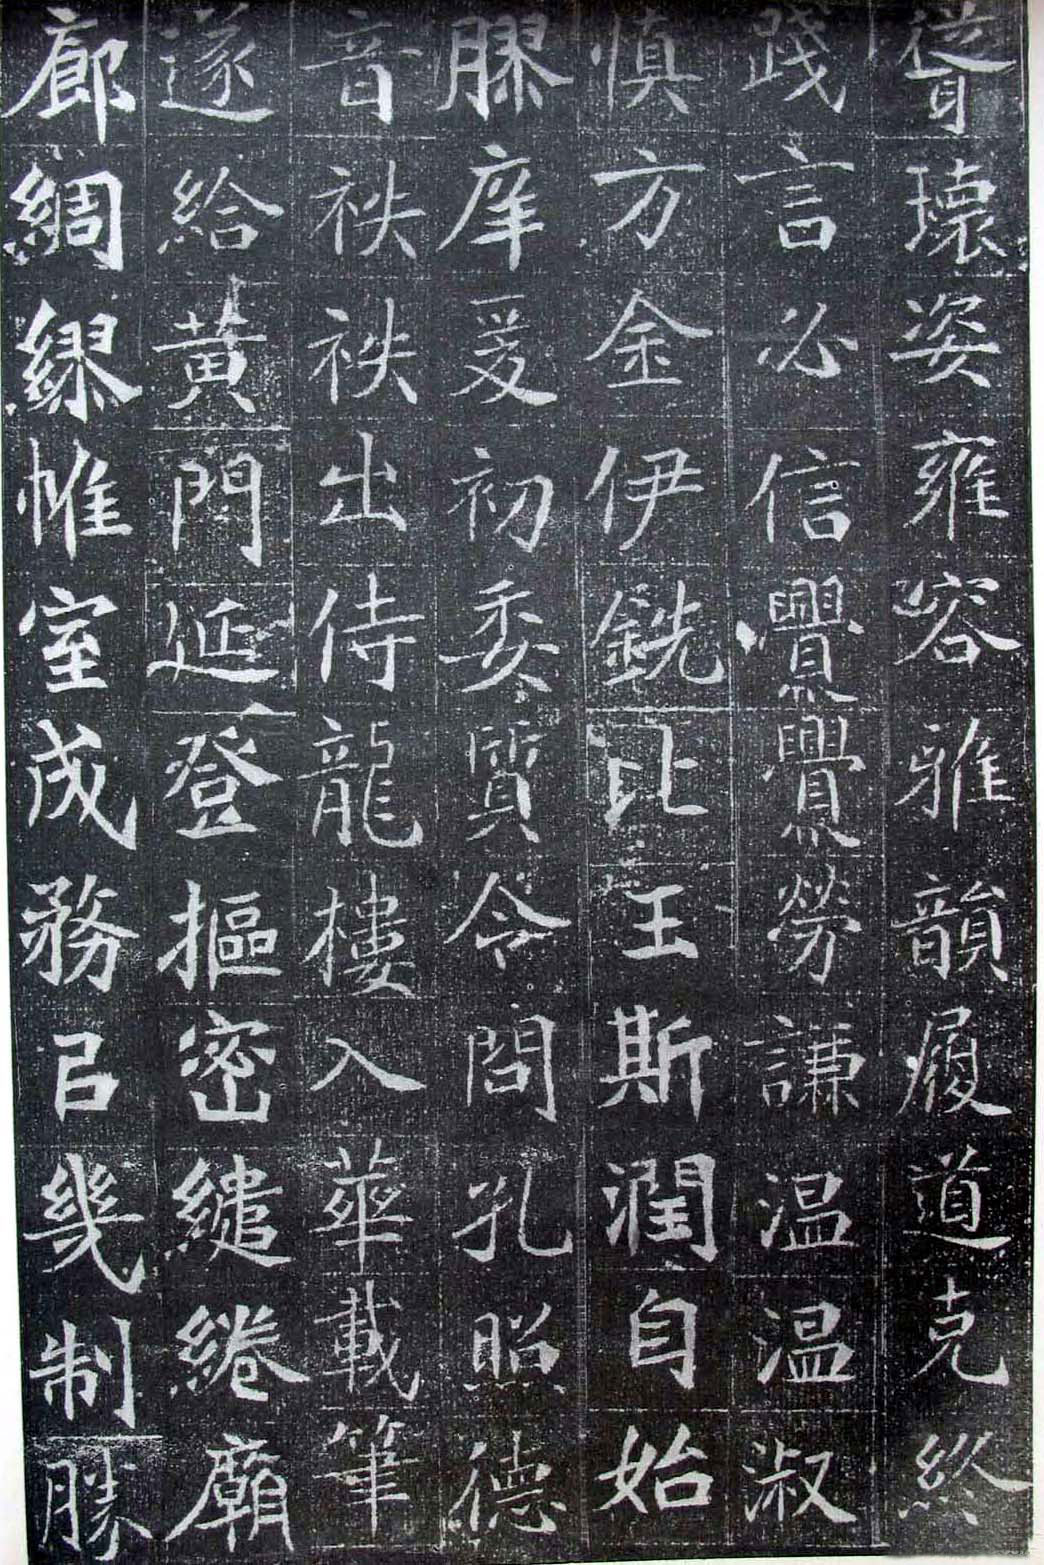 聳瓌姿雍容雅韻履道克終
踐言必信亹亹勞謙温温淑
慎方金伊銑比玉斯潤自始
膠庠爰初委質令問孔照德
音秩秩出侍龍樓入華載筆
遂給黃門延登摳密繾綣廟
廊綢繆帷室成務㠯幾制勝